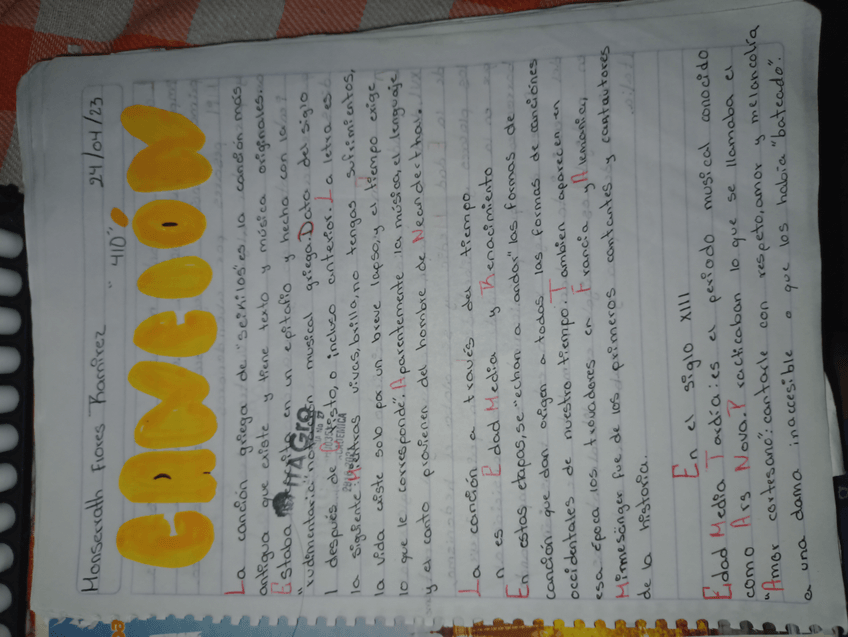 Monserrath Flores Ramírez 24/04/23
"410"
CANCIÓN
La canción griega de "seikilos" es la canción más
antigua que existe y tiene texto y música originales.
Estaba en un epitafio y hecha con la
"rudimentaria" musical griega. Data del siglo
I después de Cristo, o incluso anterior. La letra es
la siguiente: Mientras vivas, brilla, no tengas sufrimientos,
la vida existe solo por un breve lapso, y el tiempo exige
lo que le corresponde". Aparentemente la música, el lenguaje
y el canto provienen del hombre de Neanderthal.
La canción a través del tiempo
n es Edad Media y Renacimiento
En estas etapas, se "echan a andar" las formas de
canción que dan origen a todas las formas de canciónes
occidentales de nuestro tiempo. Tambien aparecen en
esa época los trovadores en Francia y Alemania,
Minnesänger fue de los primeros cantantes y cantautores
de la historia.
En el siglo XIII
Edad Media Tardía: es el periodo musical conocido
como Ars Nova. Practicaban lo que se llamaba el
"Amor cortesano": cantarle con respeto, amor y melancolía
a una dama inaccesible o que los había "bateado".
PITAGoro